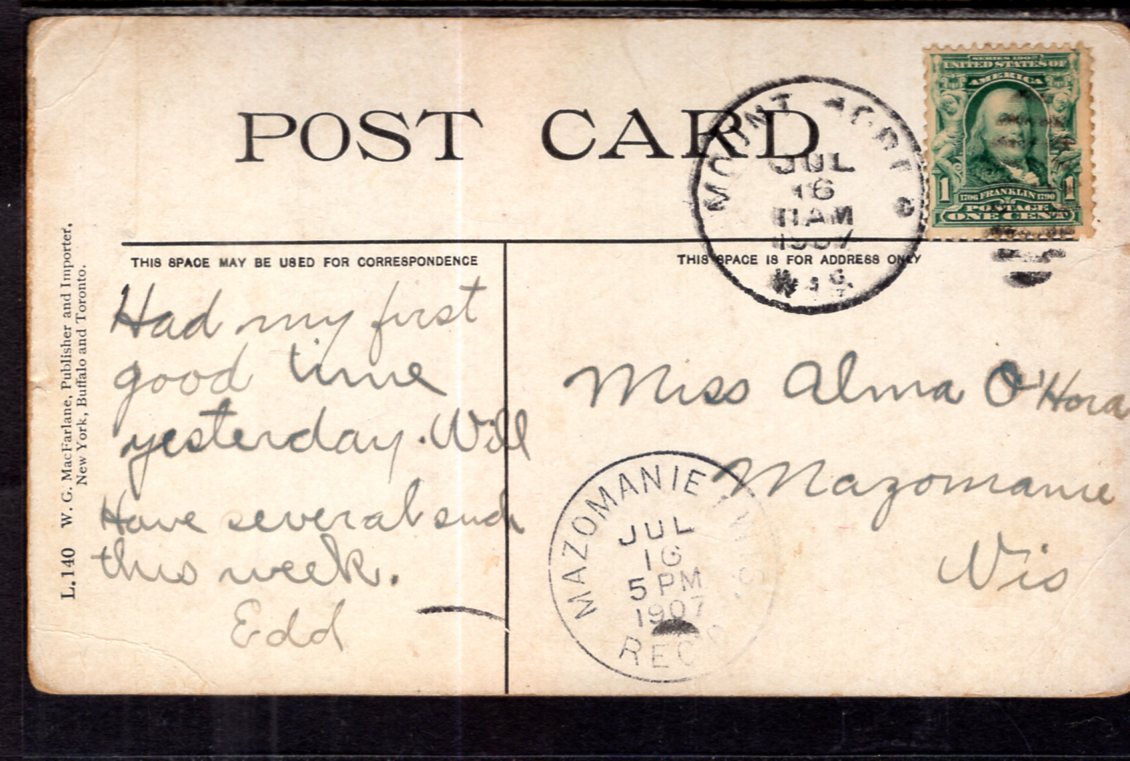 POST CARD
MOUNT
JUL
16
11 AM
1907
WIS.
SERIES 1902
UNITED STATES OF
AMERICA
1 1706 FRANKLIN 1790 1
POSTAGE
ONE CENT
THIS SPACE MAY BE USED FOR CORRESPONDENCE
THIS SPACE IS FOR ADDRESS ONLY
Had my first
good time
yesterday. Will
Have several such
this week.
Edd
Miss Alma O'Hora
Mazomanie
Wis
MAZOMANIE, WIS.
JUL
16
5 PM
1907
REC'D
L. 140 W. G. MacFarlane, Publisher and Importer,
New York, Buffalo and Toronto.